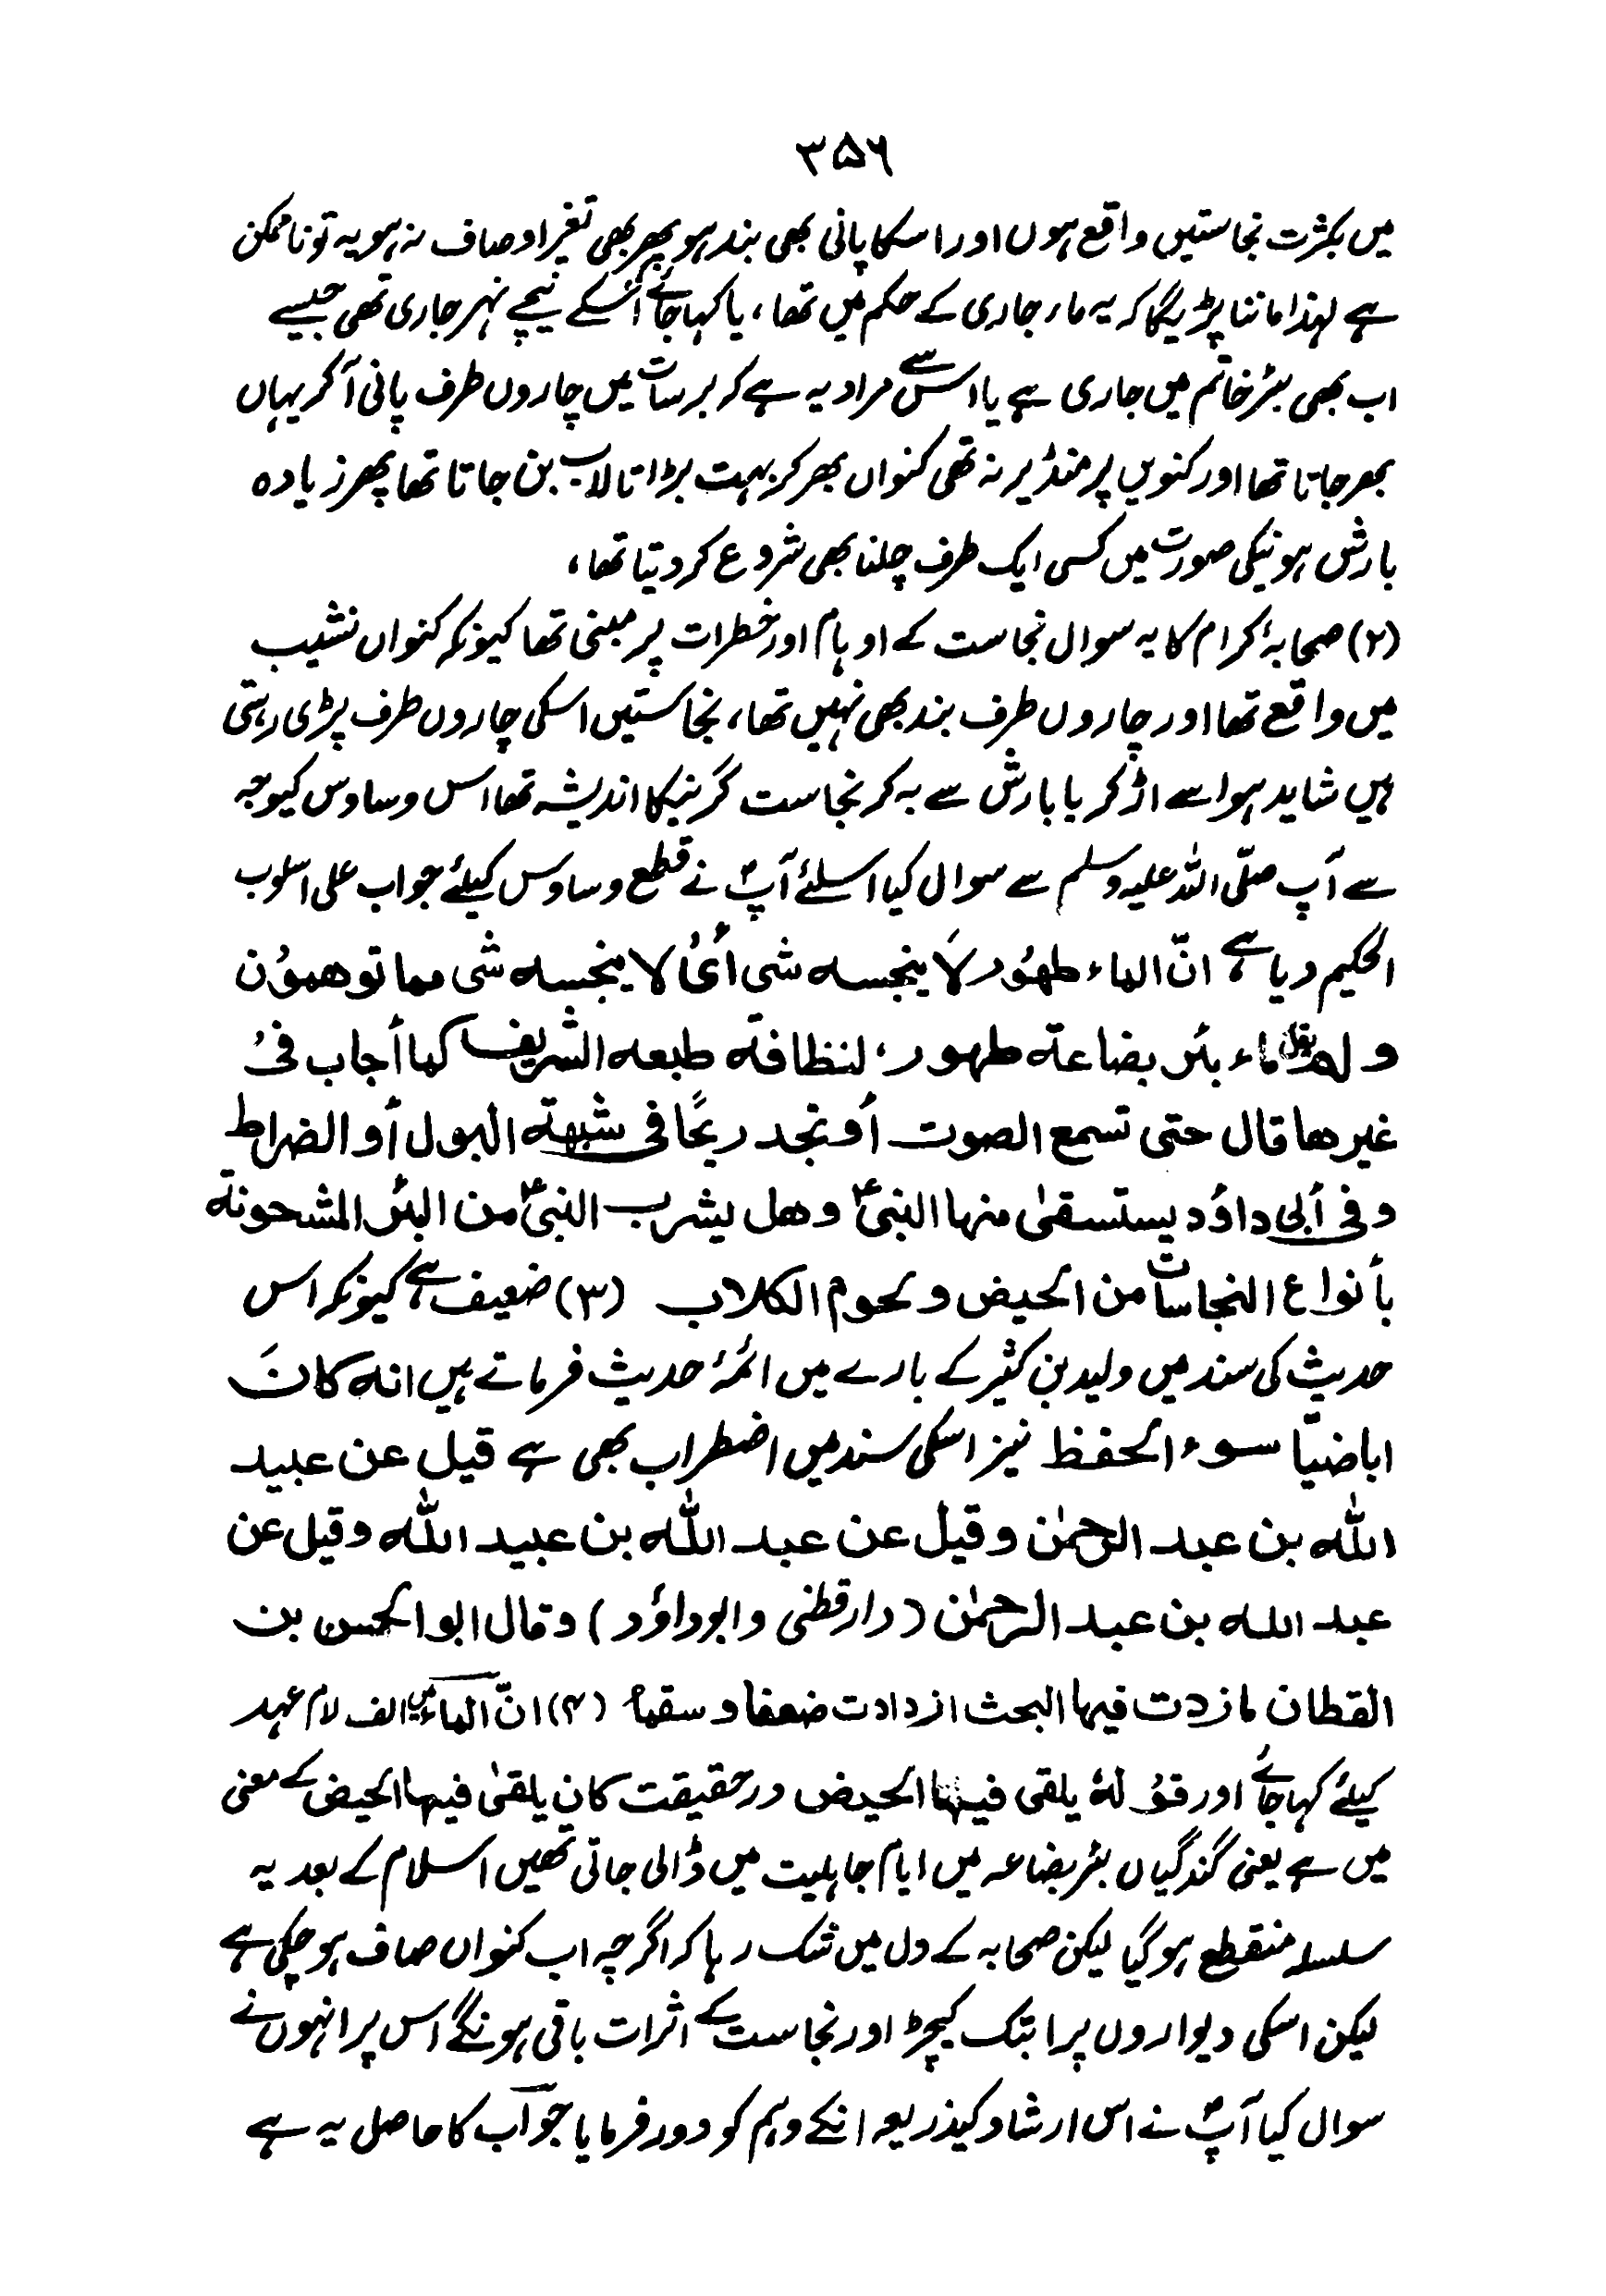 ۳۵۶
میں بکثرت نجاستیں واقع ہوں اور اسکا پانی بھی بند ہو پھر بھی تغیر اوصاف نہ ہو یہ تو ناممکن
ہے لہذا ماننا پڑیگا کہ یہ ماء جاری کے حکم میں تھا، یا کہا جائے اسکے نیچے نہر جاری تھی جیسے
اب بھی بئر خاتم میں جاری ہے یا اس سے مراد یہ ہے کہ برسات میں چاروں طرف پانی آکر یہاں
بھر جاتا تھا اور کنویں پر منڈیر نہ تھی کنواں بھر کر بہت بڑا تالاب بن جاتا تھا پھر زیادہ
بارش ہونیکی صورت میں کسی ایک طرف چلنا بھی شروع کر دیتا تھا،
(۲) صحابۂ کرام کا یہ سوال نجاست کے اوہام اور خطرات پر مبنی تھا کیونکہ کنواں نشیب
میں واقع تھا اور چاروں طرف بند بھی نہیں تھا، نجاستیں اسکی چاروں طرف پڑی رہتی
ہیں شاید ہوا سے اڑکر یا بارش سے بہ کر نجاست گرنیکا اندیشہ تھا اس وساوس کیوجہ
سے آپ صلّی اللہ علیہ وسلم سے سوال کیا اسلئے آپؐ نے قطع وساوس کیلئے جواب علی اسلوب
الحکیم دیا ہے انّ الماء طھُور لَا ینجسه شی أیْ لا ینجسه شی مما توھموْن
و لم یقل ماء بئر بضاعة طھور، لنظافة طبعه الشریف کما أجاب فیْ
غیرھا قال حتی تسمع الصوت أو تجد ریحًا فی شبھة البول أو الضراط
و فی أبی داؤد یستسقیٰ منھا النبیؐ و ھل یشرب النبیؐ من البئر المشحونة
بأنواع النجاسات من الحیض و لحوم الکلاب (۳) ضعیف ہے کیونکہ اس
حدیث کی سند میں ولید بن کثیر کے بارے میں ائمۂ حدیث فرماتے ہیں انه کانَ
اباضیّا سوء الحفظ نیز اسکی سند میں اضطراب بھی ہے قیل عن عبید
اللّٰه بن عبد الرحمٰن وقیل عن عبد اللّٰه بن عبید اللّٰه وقیل عن
عبد الله بن عبد الرحمٰن (دارقطنی و ابوداؤد) وقال ابو الحسن بن
القطان ما زدت فیھا البحث ازدادت ضعفا و سقما (۴) انّ الماء میں الف لام عہد
کیلئے کہا جائے اور قوْلہٗ یلقی فیھا الحیض درحقیقت کان یلقیٰ فیھا الحیض کے معنی
میں ہے یعنی گندگیاں بئر بضاعہ میں ایام جاہلیت میں ڈالی جاتی تھیں اسلام کے بعد یہ
سلسلہ منقطع ہوگیا لیکن صحابہ کے دل میں شک رہا کہ اگرچہ اب کنواں صاف ہو چکی ہے
لیکن اسکی دیواروں پر ابتک کیچڑ اور نجاست کے اثرات باقی ہونگے اس پر انہوں نے
سوال کیا آپؐ نے اس ارشاد کیذریعہ انکے وہم کو دور فرمایا جواب کا حاصل یہ ہے